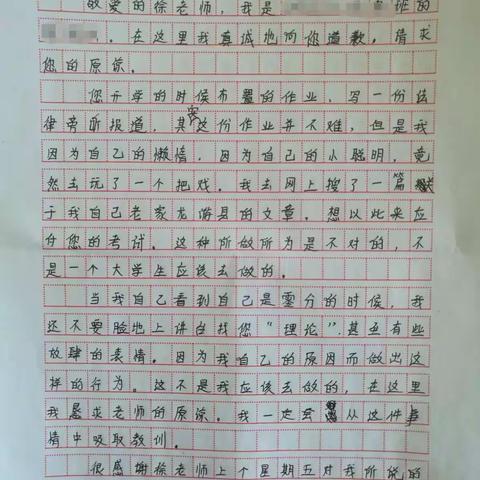 敬爱的徐老师，我是 班的
。在这里我真诚地向您道歉，请求
您的原谅。
您开学的时候布置的作业，写一份法
律旁听报道，其实这份作业并不难，但是我
因为自己的懒惰，因为自己的小聪明，竟
然去玩了一个把戏。我去网上搜了一篇关
于我自己老家龙游县的文章。想以此来应
付您的考试。这种所做所为是不对的，不
是一个大学生应该去做的。
当我自己看到自己是零分的时候，我
还不要脸地上讲台找您“理论”.甚至有些
放肆的表情。因为我自己的原因而做出这
样的行为。这不是我应该去做的，在这里
我恳求老师的原谅。我一定会从这件事
情中吸取教训。
很感谢徐老师上个星期五对我所说的